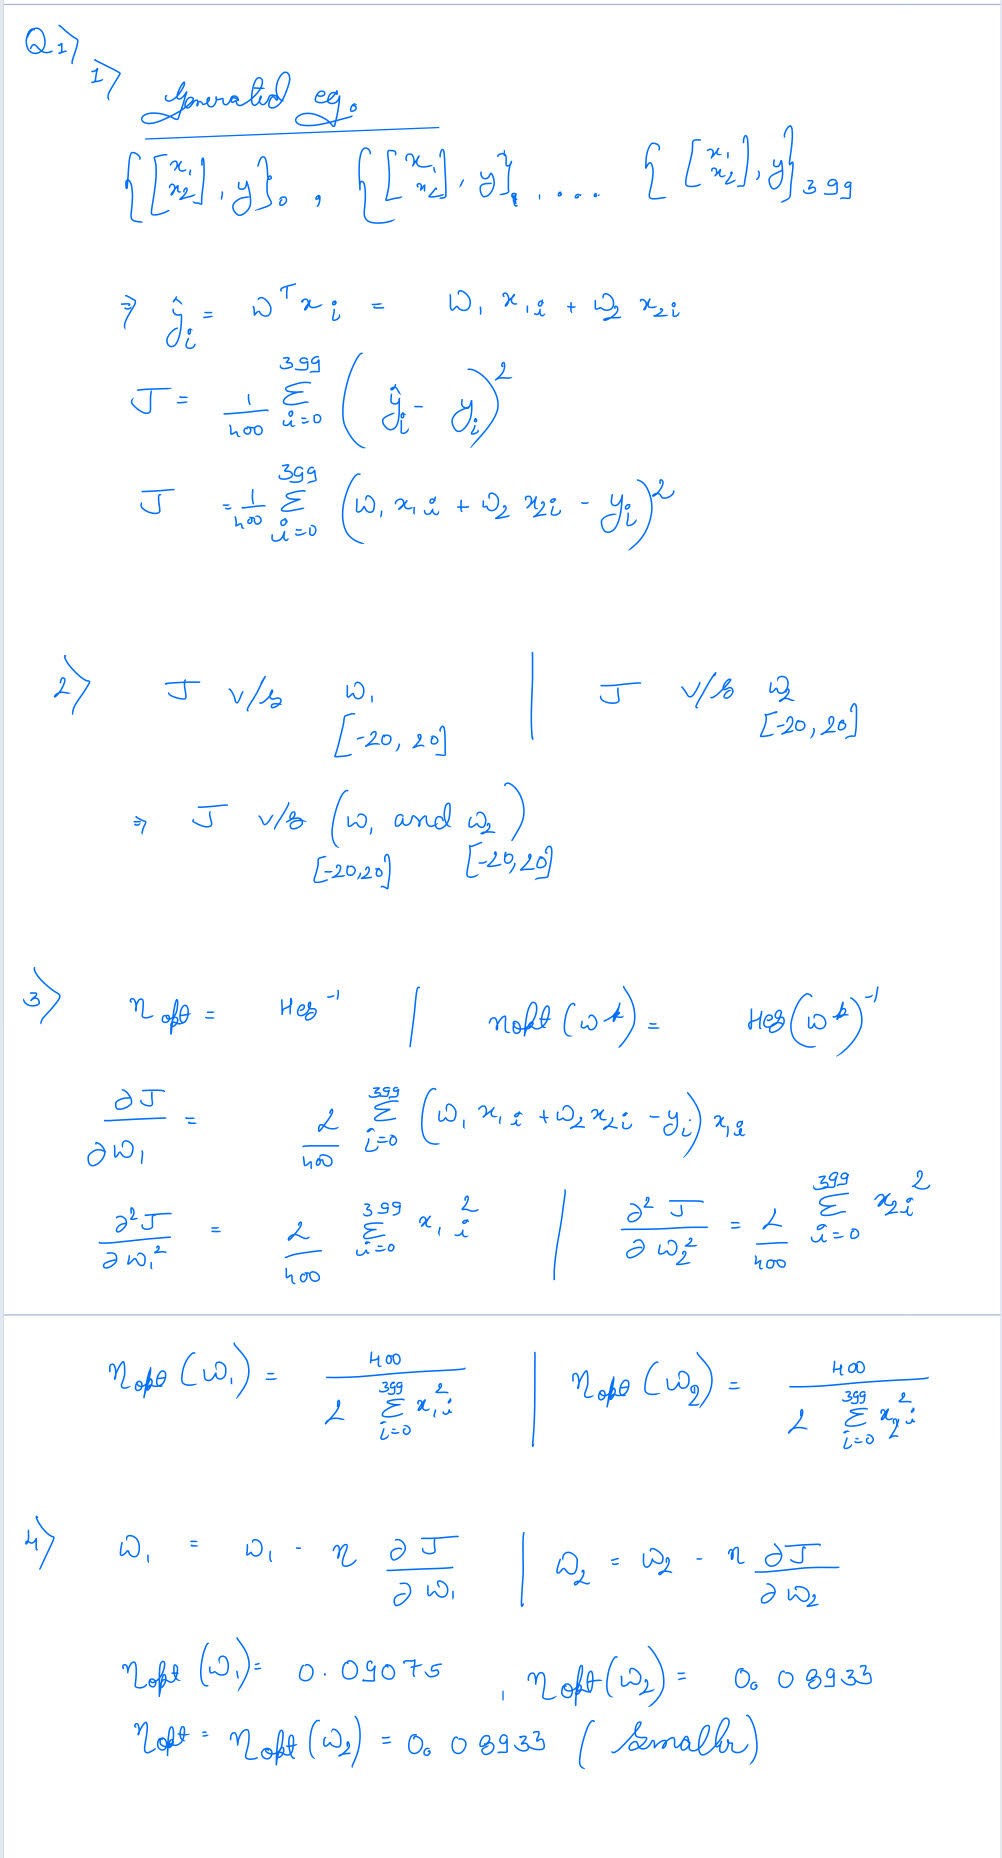 Q1)
1) Generated eq.
{[x₁ x₂], y}₀ , {[x₁ x₂], y}₁ .... {[x₁ x₂], y}₃₉₉
⇒ ŷᵢ = wᵀxᵢ = w₁ x₁ᵢ + w₂ x₂ᵢ
J = 1/400 Σ_{i=0}^{399} (ŷᵢ - yᵢ)²
J = 1/400 Σ_{i=0}^{399} (w₁ x₁ᵢ + w₂ x₂ᵢ - yᵢ)²
2) J v/s w₁ [-20, 20] | J v/s w₂ [-20, 20]
⇒ J v/s (w₁ and w₂) [-20,20] [-20,20]
3) η opt = Hes⁻¹ | ηopt (wᵏ) = Hes(wᵏ)⁻¹
∂J/∂w₁ = 2/400 Σ_{i=0}^{399} (w₁ x₁ᵢ + w₂ x₂ᵢ - yᵢ) x₁ᵢ
∂²J/∂w₁² = 2/400 Σ_{i=0}^{399} x₁ᵢ² | ∂²J/∂w₂² = 2/400 Σ_{i=0}^{399} x₂ᵢ²
ηopt (w₁) = 400 / 2 Σ_{i=0}^{399} x₁ᵢ² | ηopt (w₂) = 400 / 2 Σ_{i=0}^{399} x₂ᵢ²
4) w₁ = w₁ - η ∂J/∂w₁ | w₂ = w₂ - η ∂J/∂w₂
ηopt (w₁) = 0.09075 , ηopt (w₂) = 0.08933
ηopt = ηopt (w₂) = 0.08933 (smaller)